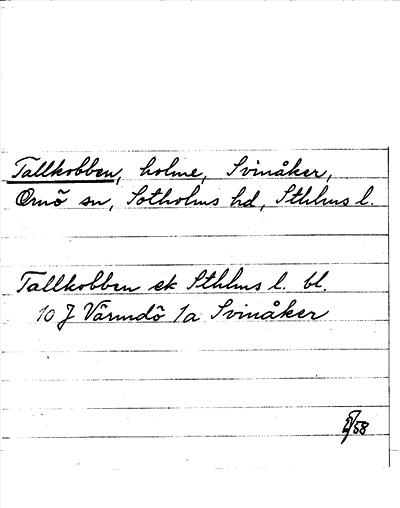 Tallkobben, holme, Svinåker,
Ornö sn, Sotholms hd, Sthlms l.
Tallkobben ek Sthlms l. bl.
10 J Värmdö 1a Svinåker
/58